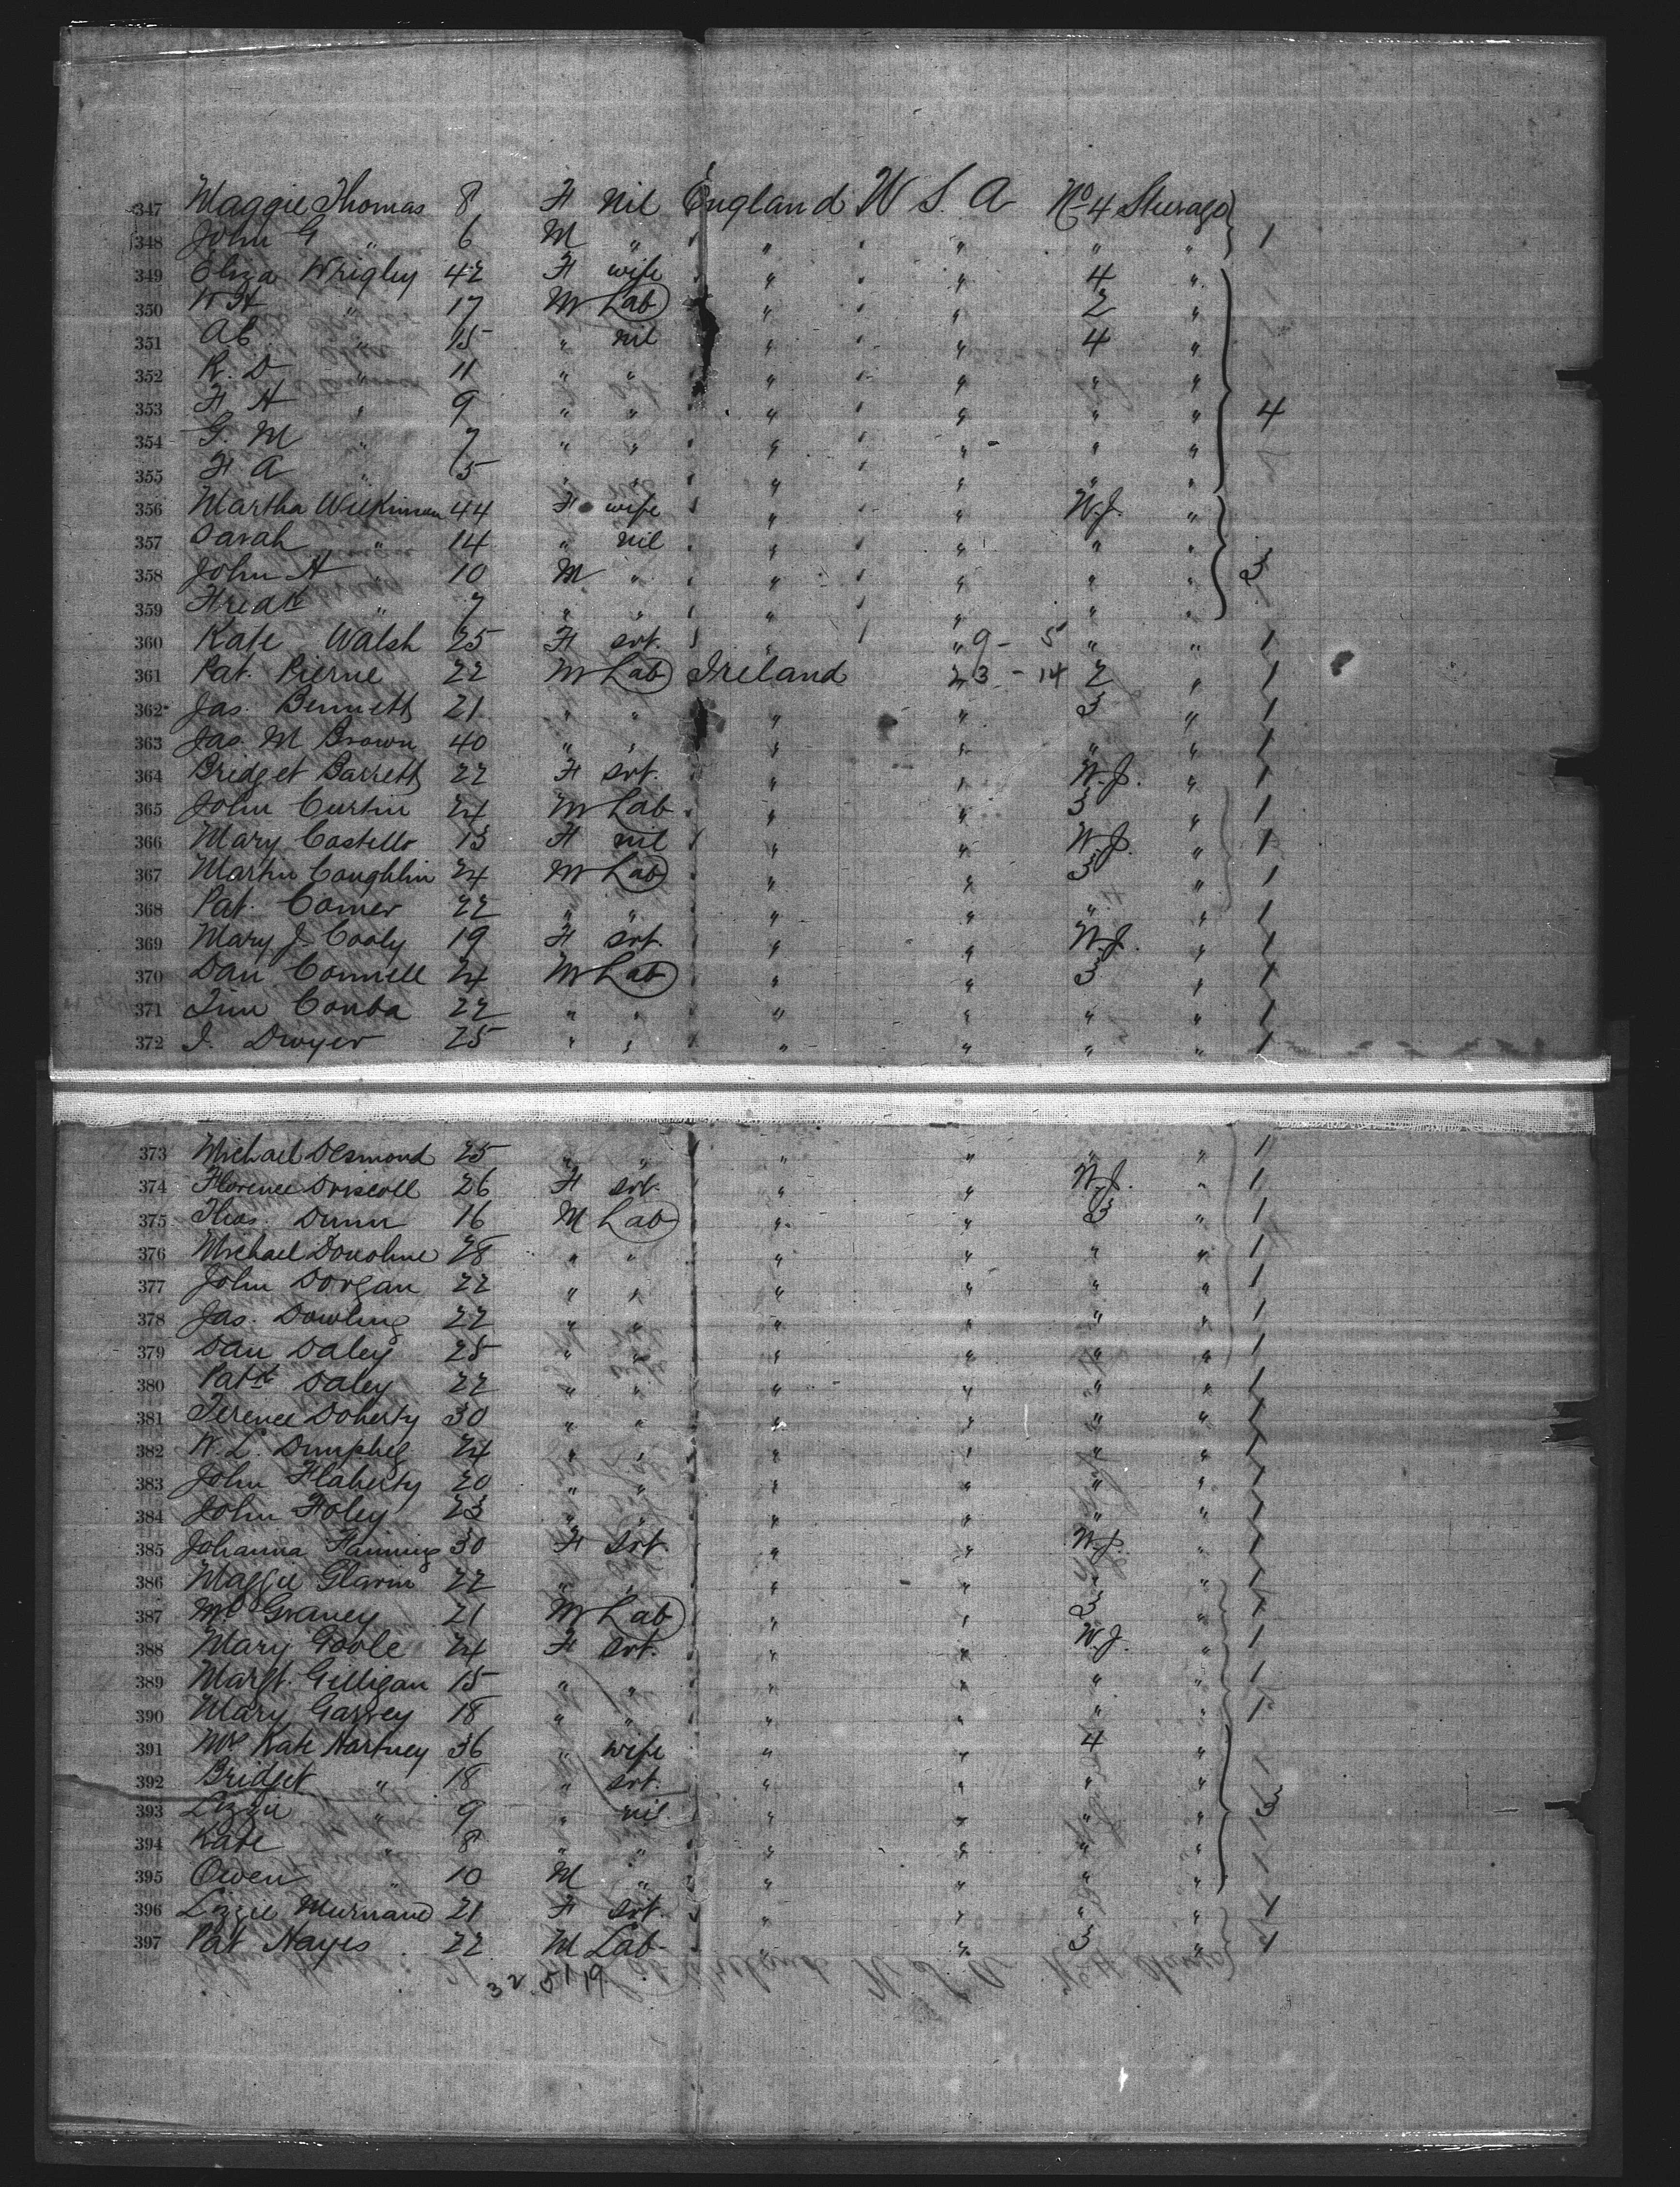 347 Maggie Thomas 8 F Nil England U S A No 4 Steerage
348 John G " 6 M " " " " " 1
349 Eliza Wrigley 42 F wife " " 4 "
350 W H " 17 M Lab " " 2 "
351 Ab. " 15 " nil " " 4 "
352 R. D " 11 " " " " " "
353 F H " 9 " " " " " " 4
354 G. M " 7 " " " " " "
355 F A " 5 " " " " " "
356 Martha Wilkinson 44 F wife " " W.J. "
357 Sarah " 14 " nil " " " "
358 John H " 10 M " " " " " 3
359 Fredk " 7 " " " " " "
360 Kate Walsh 25 F svt. " " 9 - 5 " " 1
361 Pat. Pierne 22 M Lab Ireland " 23 - 14 2 " 1
362 Jas. Bennett 21 " " " " 3 " 1
363 Jas. M Brown 40 " " " " " " 1
364 Bridget Barrett 22 F svt. " " W.J. " 1
365 John Curtin 24 M Lab " " 3 " 1
366 Mary Costello 13 F nil " " W.J. " 1
367 Martin Coughlin 24 M Lab " " 3 " 1
368 Pat. Comer 22 " " " " " " 1
369 Mary J. Cooly 19 F svt. " " W.J. " 1
370 Dan Connell 24 M Lab " " 3 " 1
371 Tim Conba 22 " " " " " " 1
372 J. Dwyer 25 " " " " " " 1
373 Michael Desmond 25 " " " " " " 1
374 Florence Driscoll 26 F svt. " " W.J. " 1
375 Thos. Dunn 16 M Lab " " 3 " 1
376 Michael Donohue 28 " " " " " " 1
377 John Dorgan 22 " " " " " " 1
378 Jas. Dowling 22 " " " " " " 1
379 Dan Daley 25 " " " " " " 1
380 Patk Daley 22 " " " " " " 1
381 Terence Doherty 30 " " " " " " 1
382 W. L. Dumpheg 24 " " " " " " 1
383 John Flaherty 20 " " " " " " 1
384 John Foley 23 " " " " " " 1
385 Johanna Fanning 30 F Svt. " " W.J. " 1
386 Maggie Glavin 22 " " " " " " 1
387 Ml Graney 21 M Lab " " 3 " 1
388 Mary Goole 24 F svt. " " W.J. " 1
389 Margt. Gilligan 15 " " " " " " 1
390 Mary Garvey 18 " " " " " " 1
391 Mrs Kate Hartney 36 " wife " " 4 "
392 Bridget " 18 " svt. " " " "
393 Lizzie " 9 " nil " " " " 3
394 Kate " 8 " " " " " "
395 Owen " 10 M " " " " "
396 Lizzie Murnane 21 F svt. " " " " 1
397 Pat Hayes 22 M Lab " " 3 " 1
32 51 19